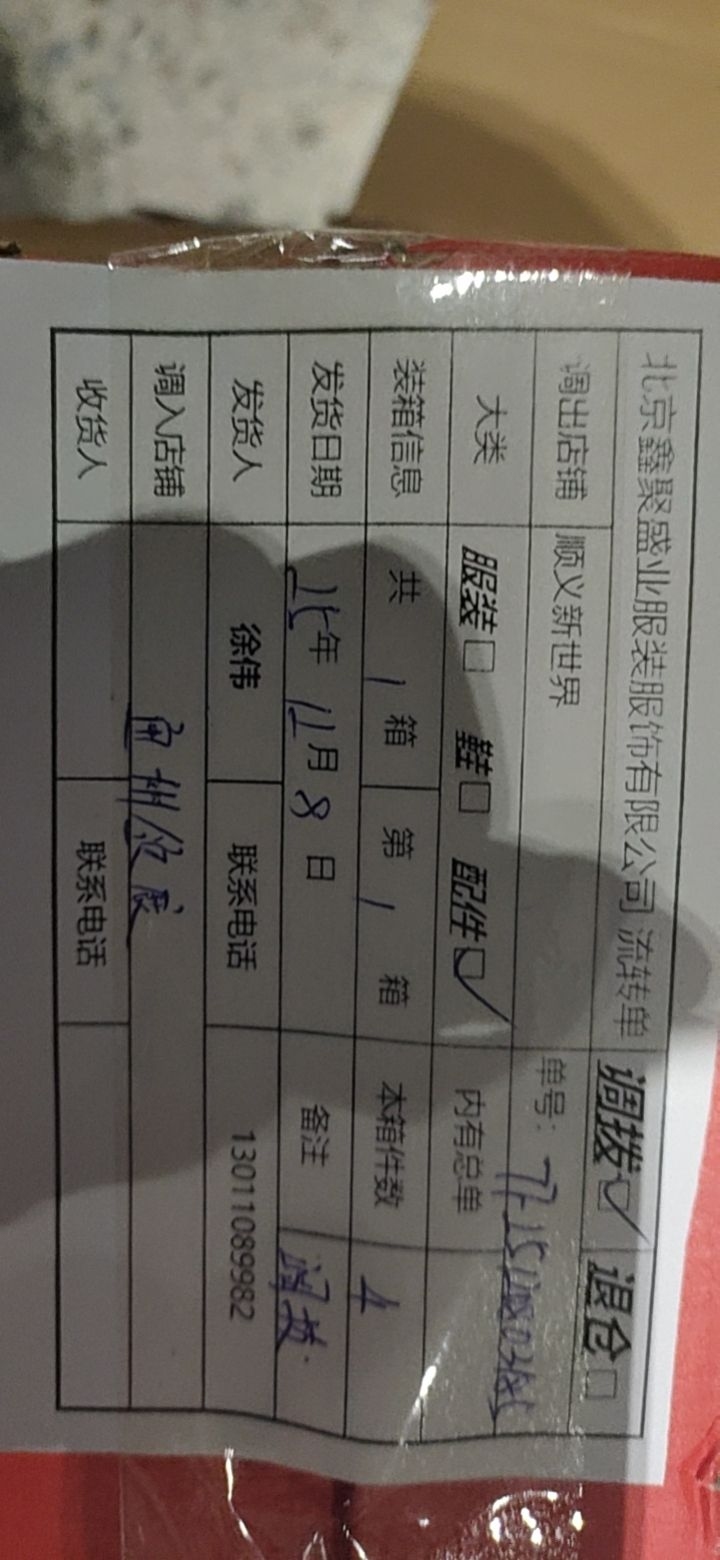 北京鑫聚盛业服装服饰有限公司 流转单 调拨☑ 退仓□
调出店铺 顺义新世界 单号:
大类 服装□ 鞋□ 配件☑ 内有总单
装箱信息 共 1 箱 第 1 箱 本箱件数 4
发货日期 25年 11月 8日 备注
发货人 徐伟 联系电话 13011089982
调入店铺
收货人 联系电话